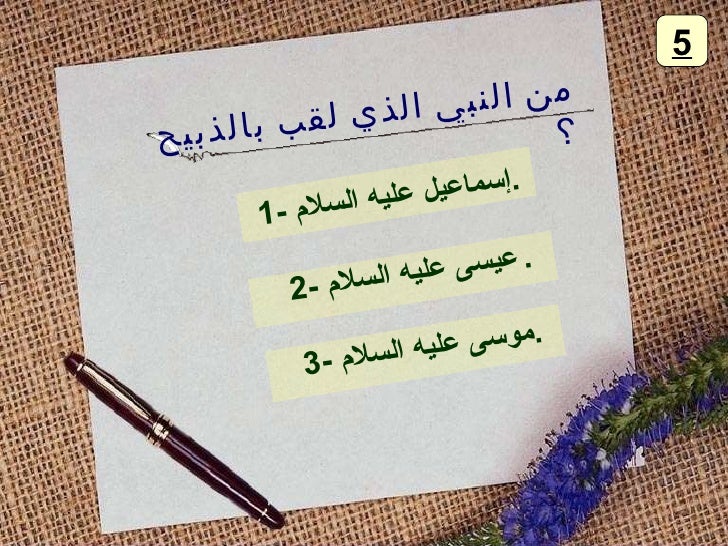 5
من النبي الذي لقب بالذبيح
؟
1- إسماعيل عليه السلام.
2- عيسى عليه السلام .
3- موسى عليه السلام.